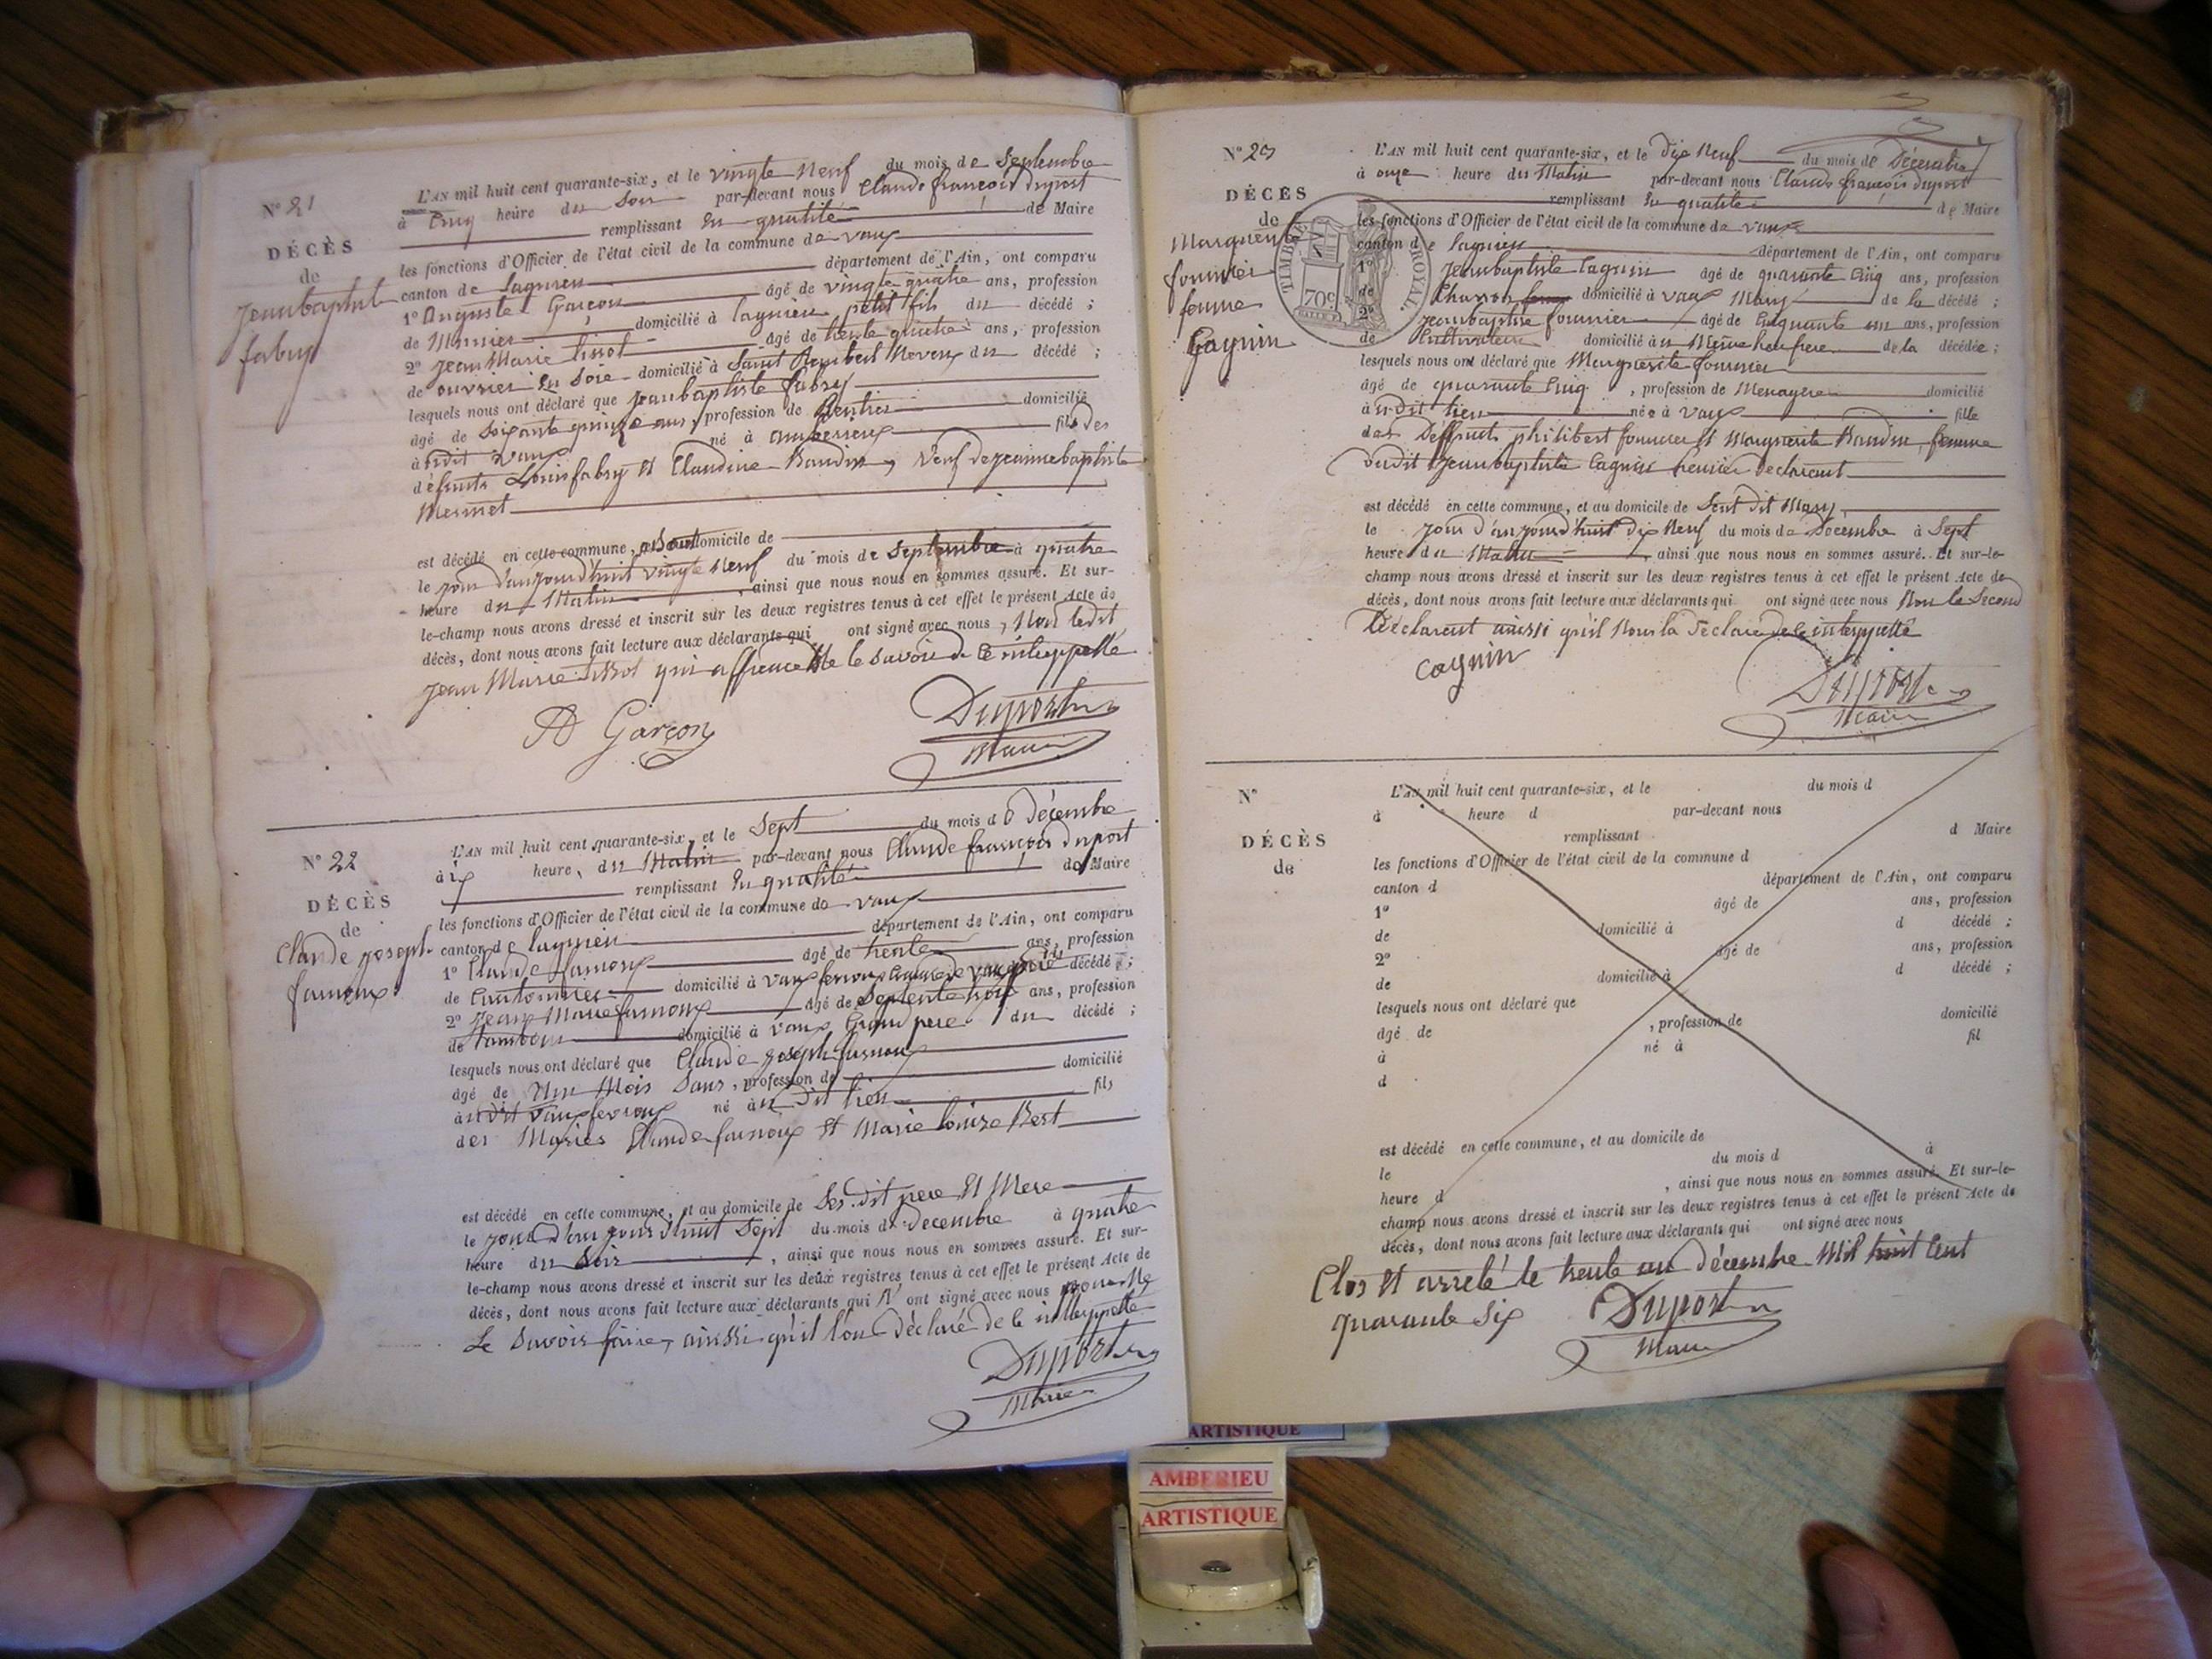 N° 21
DÉCÈS
de
Jeanbaptiste
fabry
L'AN mil huit cent quarante-six, et le vingte neuf du mois de Septembre
à Cinq heure du Soir par-devant nous Claude françois duport
remplissant En qualité de Maire
les fonctions d'Officier de l'état civil de la commune de vaux
canton de Lagnieu département de l'Ain, ont comparu
1° Auguste Garçon âgé de vingte quatre ans, profession
de Menier domicilié à lagnieu petit fils du décédé ;
2° Jean Marie tissot âgé de trente quatre ans, profession
de ouvrier En Soie domicilié à Saint Rembert Neveux du décédé ;
lesquels nous ont déclaré que jeanbaptiste fabry
âgé de Soixante quinze ans, profession de Rentier domicilié
à vaux né à amberieux fils des
défunts Louis fabry Et Claudine Baudin, veuf de jeannebaptiste
Mermet
est décédé en cette commune, domicile de
le jour d'aujourd'huit vingte neuf du mois de Septembre à quatre
heure du Matin, ainsi que nous nous en sommes assuré. Et sur-
le-champ nous avons dressé et inscrit sur les deux registres tenus à cet effet le présent Acte de
décès, dont nous avons fait lecture aux déclarants qui ont signé avec nous, Non ledit
Jean Marie tissot qui a le savoir de ce interppellé
A Garçon
Duport
Maire
N° 22
DÉCÈS
de
Claude joseph
farnoux
L'AN mil huit cent quarante-six, et le Sept du mois de Décembre
à heure, du Matin par-devant nous Claude françois duport
remplissant En qualité de Maire
les fonctions d'Officier de l'état civil de la commune de vaux
canton de lagnieu département de l'Ain, ont comparu
1° Claude farnoux âgé de trente ans, profession
de Cantonnier domicilié à vaux décédé ;
2° Jean Marie farnoux âgé de Septente ans, profession
de domicilié à vaux Grand pere du décédé ;
lesquels nous ont déclaré que Claude joseph farnoux
âgé de Un Mois Sans, profession de domicilié
à né à u Dit lieu fils
des Mariés Claude farnoux Et Marie Louise Bert
est décédé en cette commune, et au domicile de Ses Dit pere Et Mere
le jour d'aujourd'huit Sept du mois de Decembre à quatre
heure du Soir, ainsi que nous nous en sommes assuré. Et sur-
le-champ nous avons dressé et inscrit sur les deux registres tenus à cet effet le présent Acte de
décès, dont nous avons fait lecture aux déclarants qui N' ont signé avec nous
Le Savoir faire, ainssi qu'il l'on Déclaré de ce interppellé
Duport
Maire
N° 23
DÉCÈS
de
Marguerite
fournier
femme
Cagnin
TIMBRE ROYAL
70c
L'AN mil huit cent quarante-six, et le Dix Neuf du mois de Décembre
à onze heure du Matin par-devant nous Claude françois duport
remplissant En qualite de Maire
les fonctions d'Officier de l'état civil de la commune de vaux
canton de lagnieu département de l'Ain, ont comparu
1° Jeanbaptiste Cagnin âgé de quarante Cinq ans, profession
de Charron domicilié à vaux Mary de la décédé ;
2° jeanbaptiste fournier âgé de Cinquante un ans, profession
de Cultivateur domicilié à u Meme lieu frere de la décédée ;
lesquels nous ont déclaré que Marguerite fournier
âgé de quarante Cinq, profession de Menagere domicilié
à u dit lieu née à vaux fille
des Deffunts philibert fournier Et Marguerite Baudin, femme
dudit Jeanbaptiste Cagnin Premier Declarant
est décédé en cette commune, et au domicile de Sont dit Mary
le jour d'aujourd'huit dix Neuf du mois de Décembre à Sept
heure du Matin, ainsi que nous nous en sommes assuré. Et sur-le-
champ nous avons dressé et inscrit sur les deux registres tenus à cet effet le présent Acte de
décès, dont nous avons fait lecture aux déclarants qui ont signé avec nous Non le Second
Déclarent ainssi qu'il Nous la Déclaré de ce interppellé
cagnin
Duport
Maire
N°
DÉCÈS
de
L'AN mil huit cent quarante-six, et le du mois d
à heure d par-devant nous
remplissant d Maire
les fonctions d'Officier de l'état civil de la commune d
canton d département de l'Ain, ont comparu
1° âgé de ans, profession
de domicilié à d décédé ;
2° âgé de ans, profession
de domicilié à d décédé ;
lesquels nous ont déclaré que
âgé de , profession de domicilié
à né à fil
d
est décédé en cette commune, et au domicile de
le du mois d à
heure d , ainsi que nous nous en sommes assuré. Et sur-le-
champ nous avons dressé et inscrit sur les deux registres tenus à cet effet le présent Acte de
décès, dont nous avons fait lecture aux déclarants qui ont signé avec nous
Clos Et arrelé le trente un décembre Mil huit Cent
quarante Six
Duport
Maire
ARTISTIQUE
AMBERIEU
ARTISTIQUE